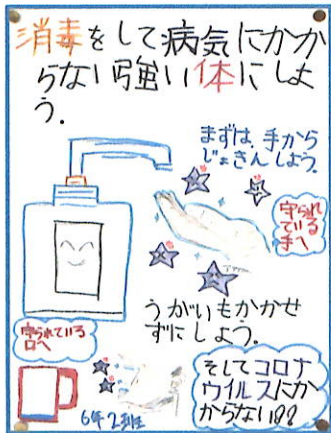 消毒をして病気にかか
らない強い体にしよ
う.
まずは、手から
じょきんしよう.
守られ
ている
手へ
うがいもかかせ
ずにしよう.
守られている
口へ
そしてコロナ
ウイルスにか
からない!!
6年2組